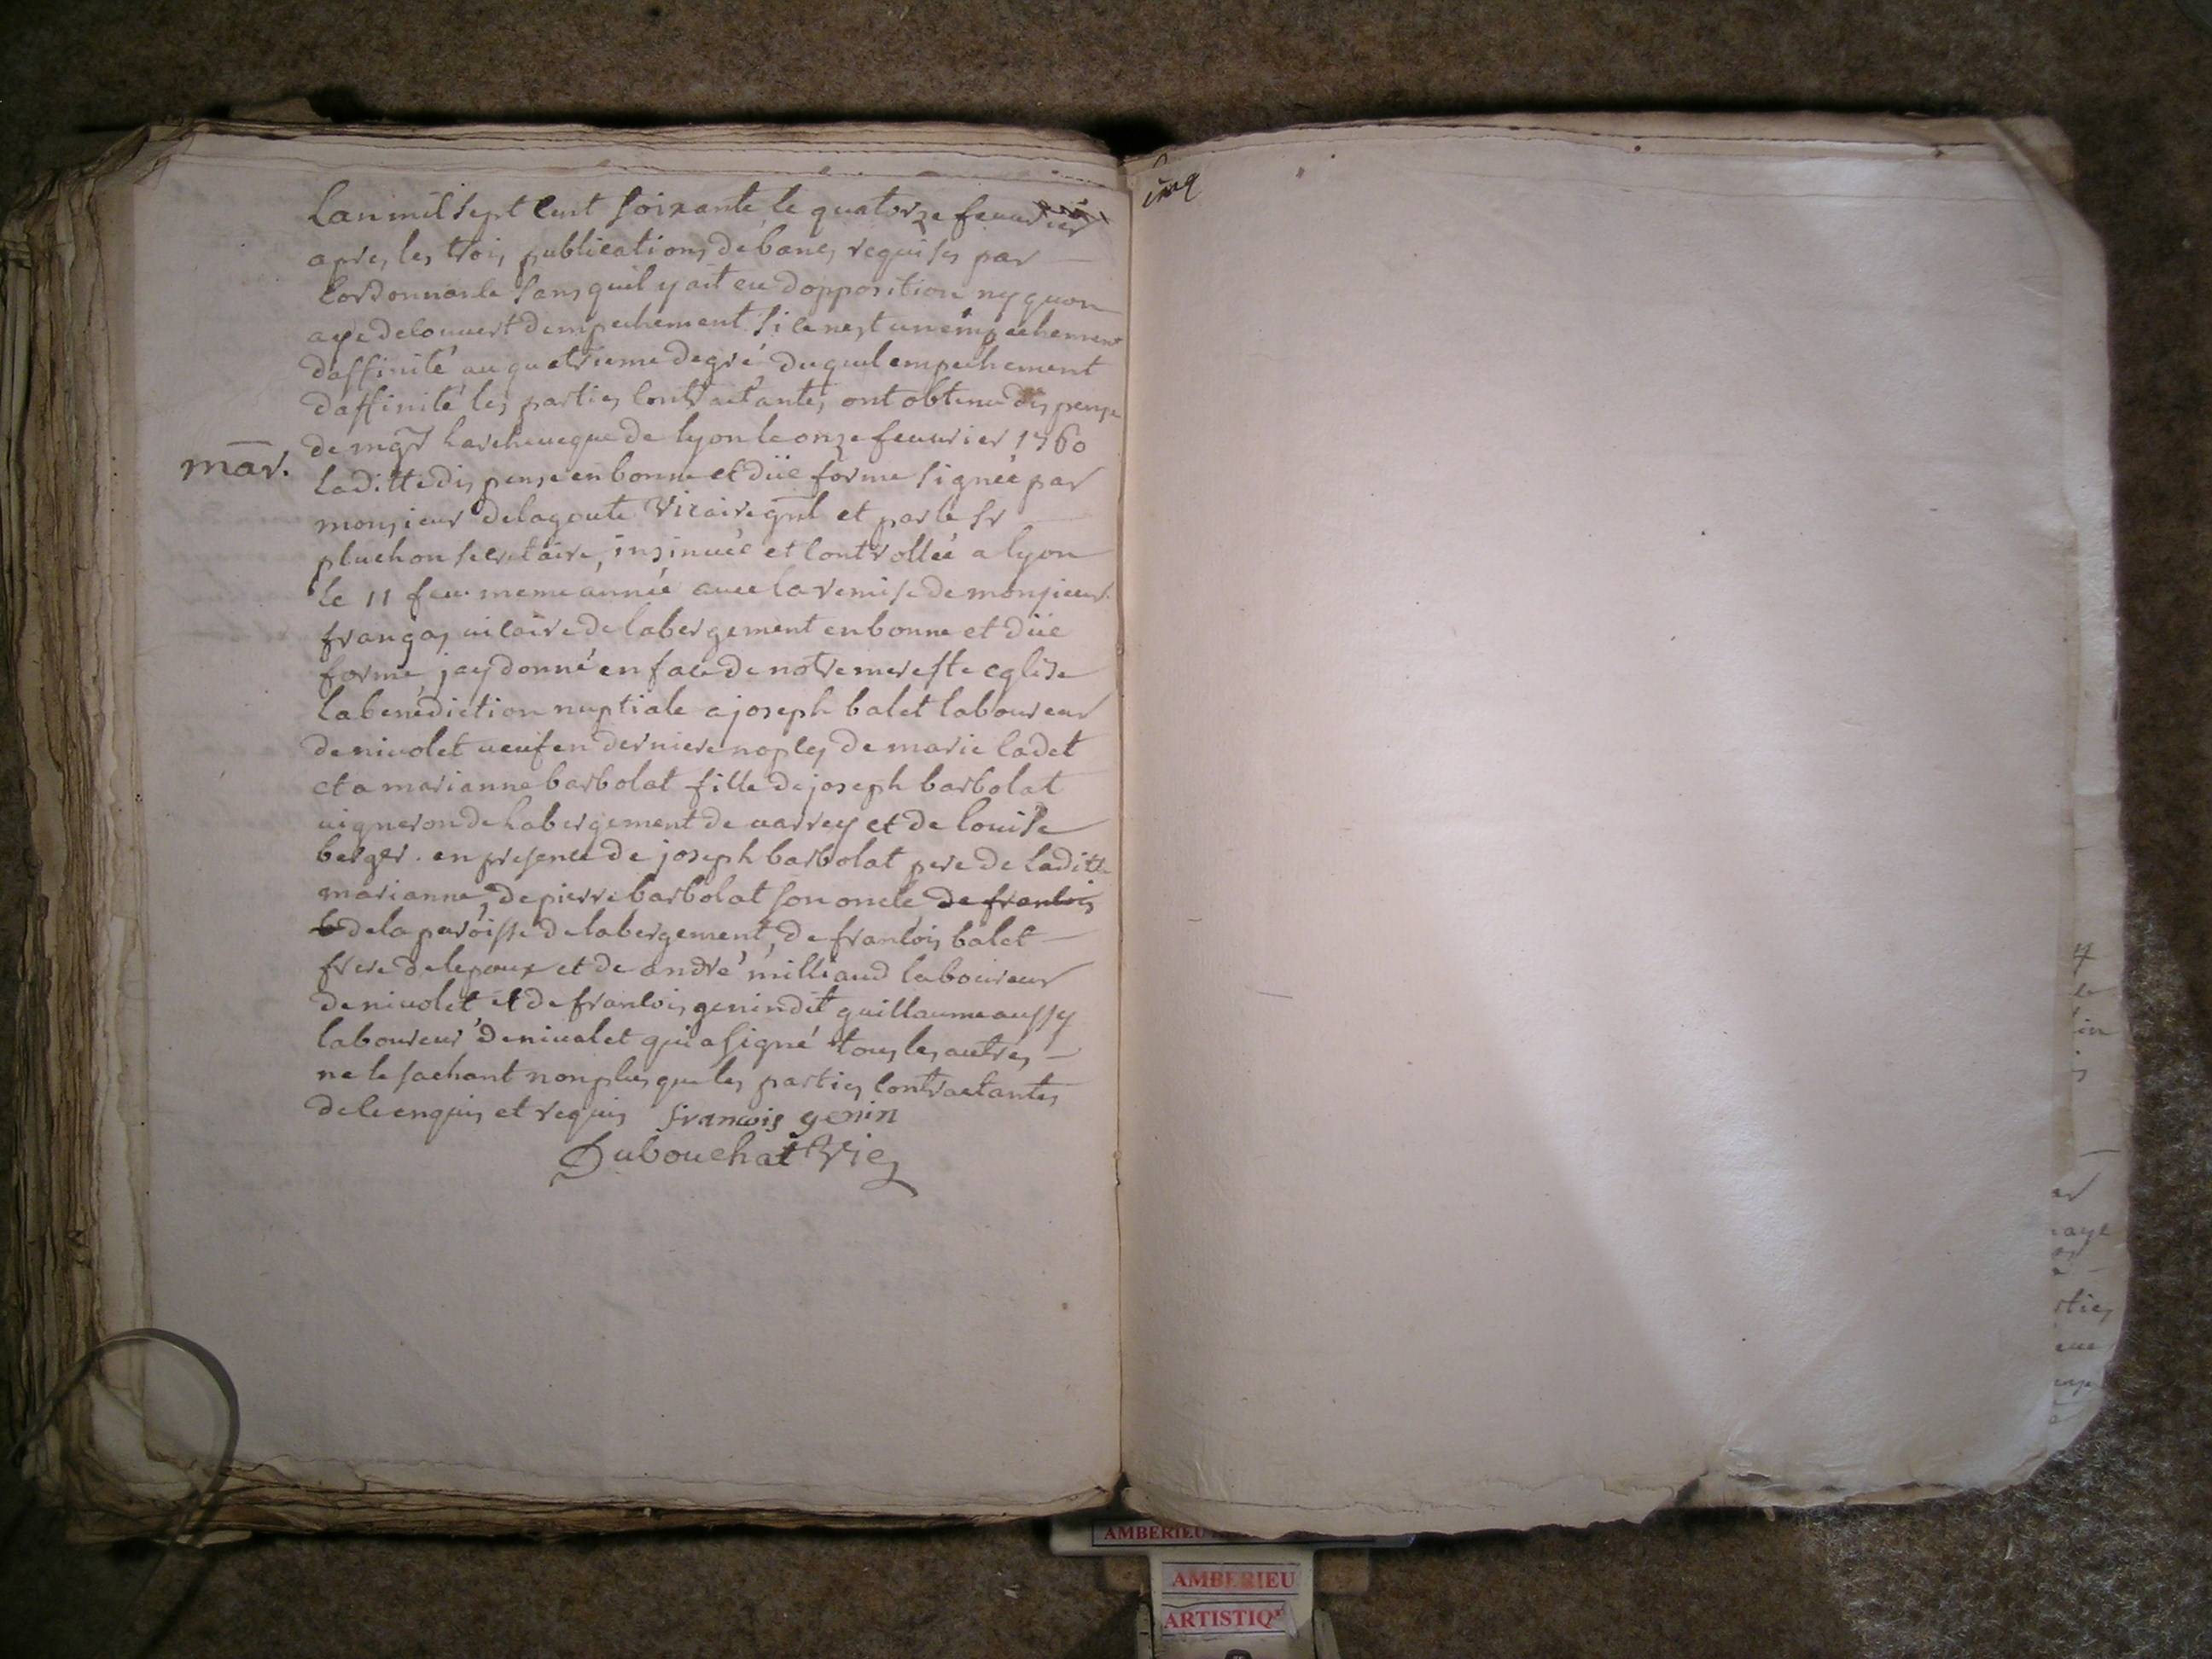 mar.
Lan mil sept cent soixante le quatorze feuurier
apres les trois publications de bancs requises par
lordonnance sans quil y ait eu dopposition ny quon
aye decouuert dempechement si ce nest un empechement
daffinité au quatrieme degré duquel empechement
daffinité les parties contractantes ont obtenu dispense
de mgr larcheueque de lyon le onze feuurier 1760
laditte dispense en bonne et düe forme signée par
monsieur delagoute Vicaire gnl et par le sr
pluchon secretaire, insinuée et controllée a lyon
le 11 feu. meme année auec la remise de monsieur
frangas uicaire de labergement en bonne et düe
forme jay donné en face de notre mere ste eglise
la benediction nuptiale a joseph balet laboureur
de niuolet ueuf en derniere nopces de marie cadet
et a marianne barbolat fille de joseph barbolat
uigneron de labergement de uarrey et de louise
berger. en presence de joseph barbolat pere de laditte
marianne, de pierre barbolat son oncle de francois
b de la paroisse de labergement, de francois balet
frere de lepoux et de andré milliand laboureur
de niuolet et de francois genin dit guillaume aussy
laboureur de niuolet qui a signé tous les autres
ne le sachant non plus que les parties contractantes
de ce enquis et requis francois genin
Dubouchat Vic
cinq
aye
rties
AMBERIEU
AMBERIEU
ARTISTIQ